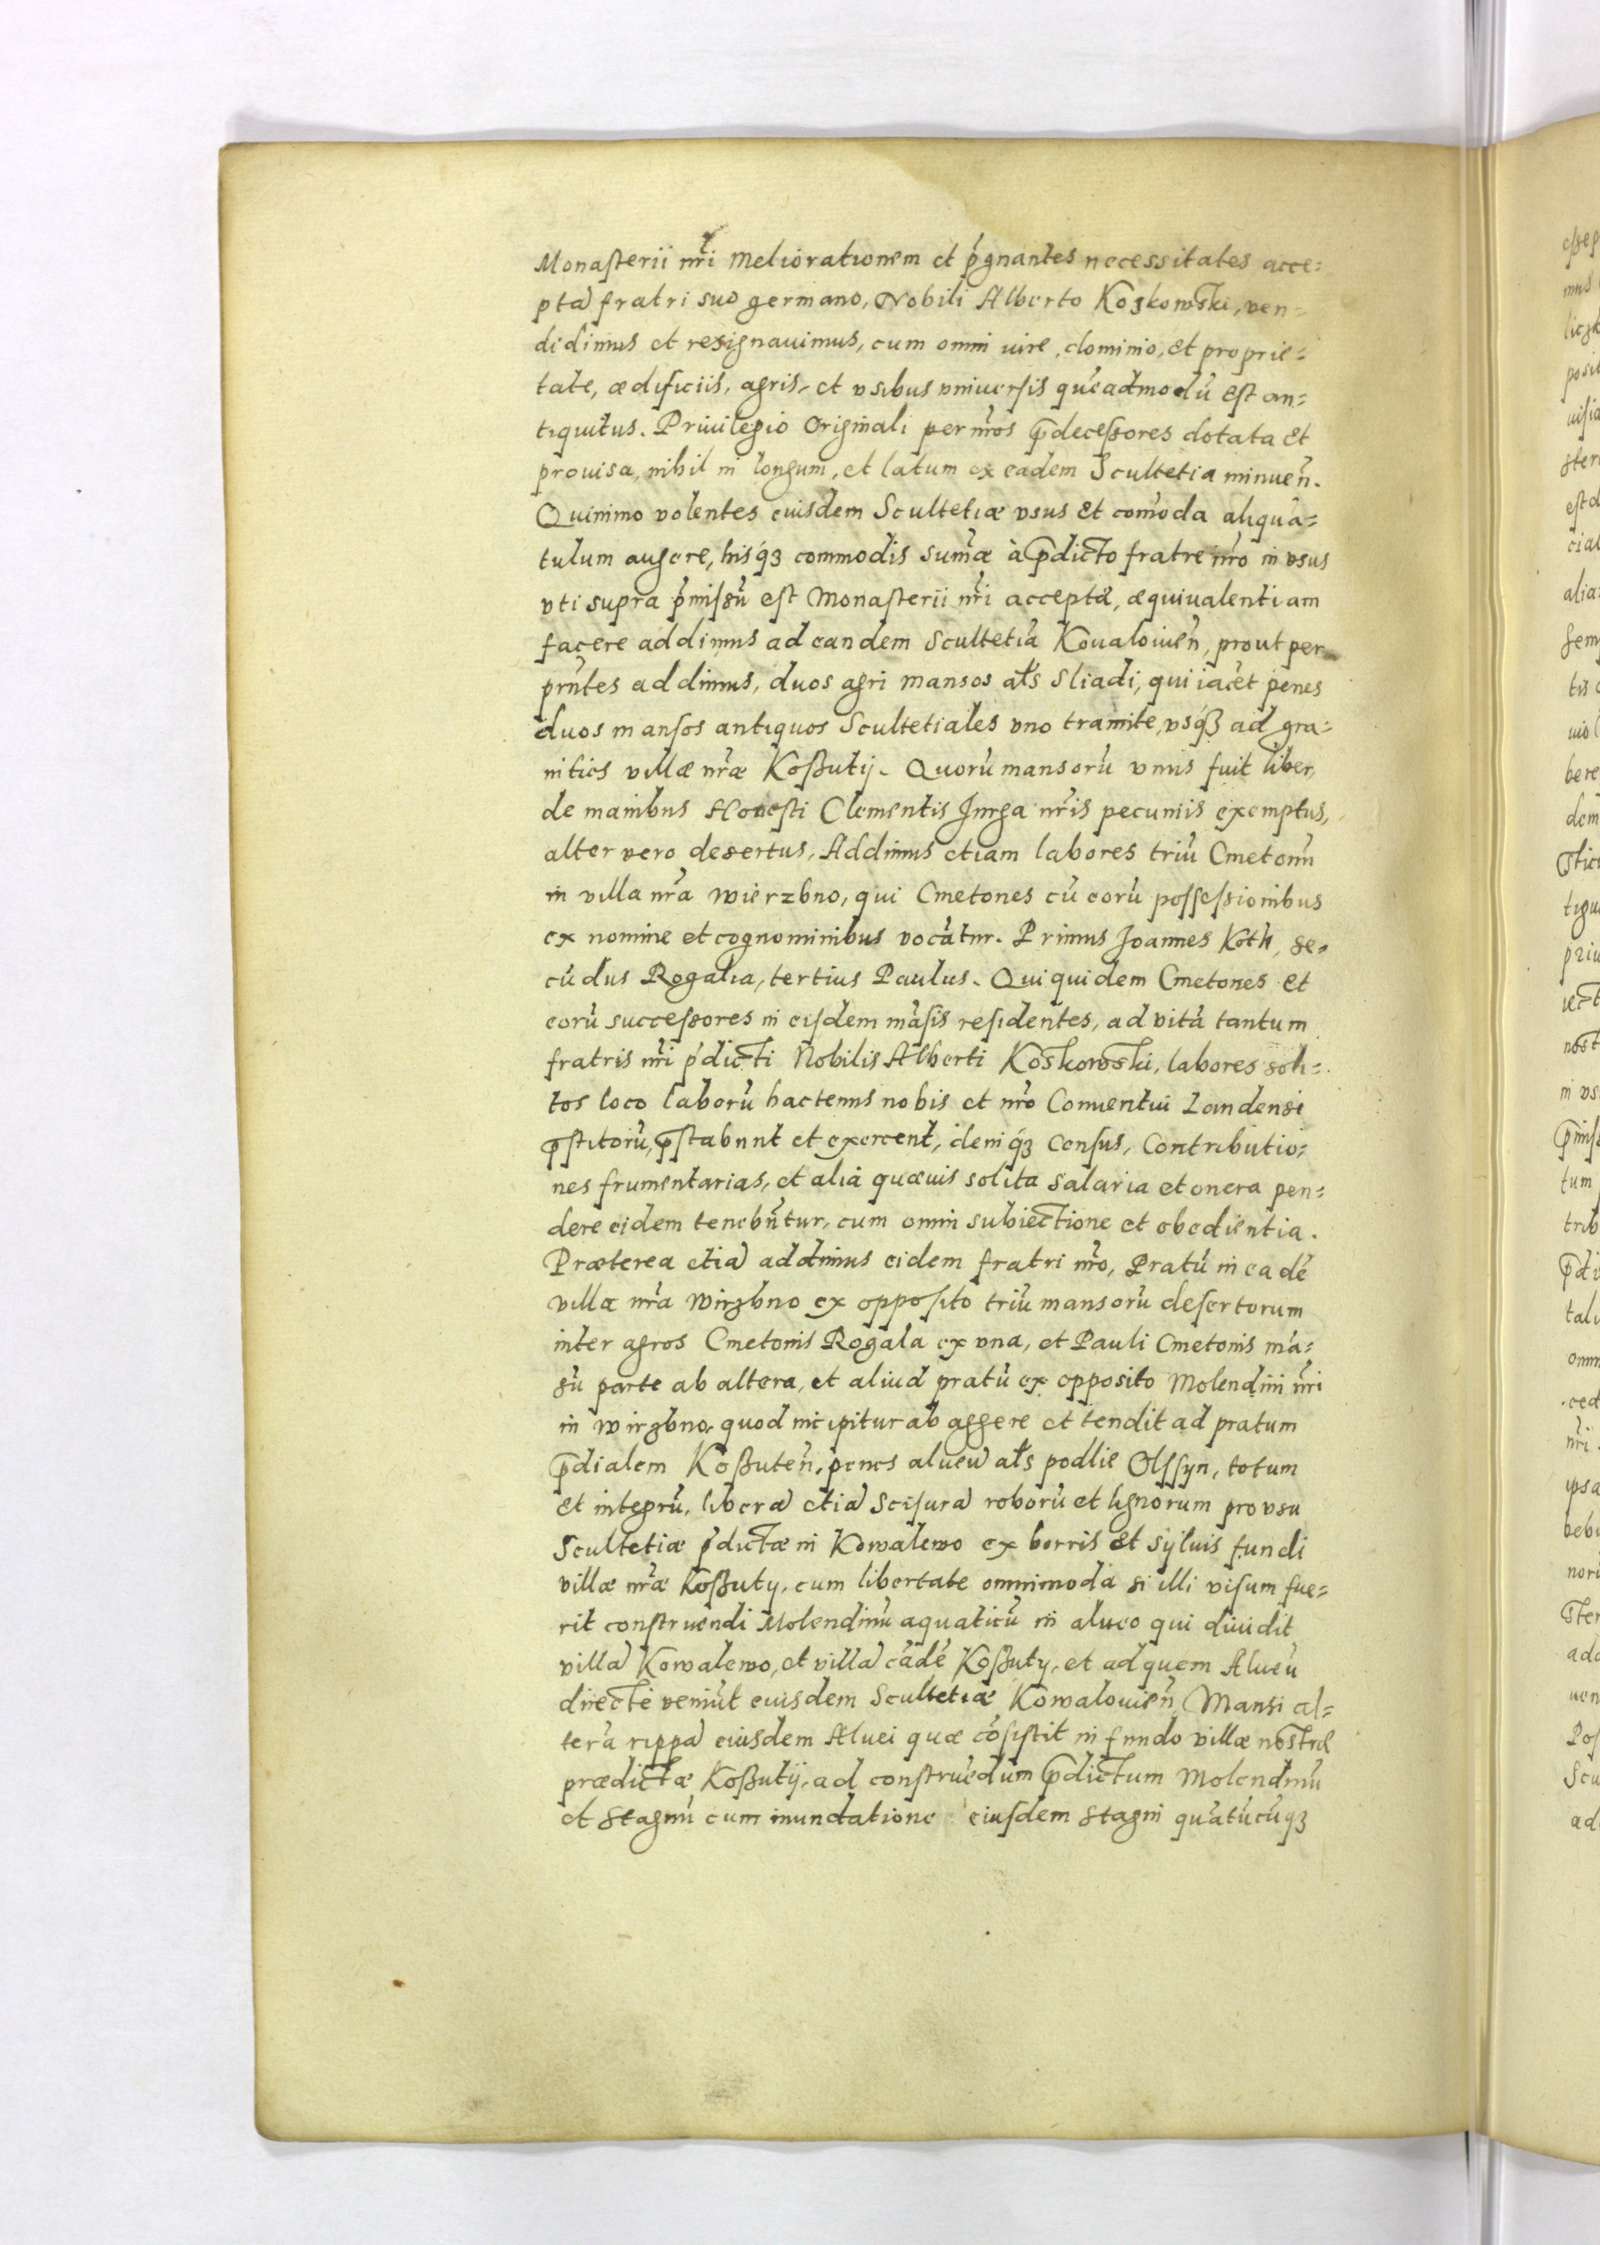 Monasterii nr̃i meliorationem et p̃gnantes necessitates acce=
ptã fratri suo germano, Nobili Alberto Kozkowski, ven=
didimus et resignauimus, cum omni iure, dominio, et proprie=
tate, ædificiis, agris, et vsibus vniuersis quẽadmodũ est an=
tiquitus. Priuilegio Originali per nr̃os p̃decessores dotata et
prouisa, nihil in longum, et latum ex eadem Scultetia minueñ.
Quinimo volentes eiusdem Scultetiæ vsus et com̃oda aliquã=
tulum augere, hisq́ꝫ commodis sum̃æ à p̃dicto fratre nr̃o in vsus
vti supra p̃missũ est Monasterii nr̃i acceptæ, æquiualentiam
facere addimus ad eandem Scultetiã Koualouieñ, prout per
pr̃ntes addimus, duos agri mansos als̃ Sliadi, qui iacẽt penes
duos mansos antiquos Scultetiales vno tramite, vsq́ꝫ ad gra=
nities villæ nr̃æ Koßutÿ. Quorũ mansorũ vnus fuit liber,
de manibus Honesti Clementis Jurga nr̃is pecuniis exemptus,
alter vero desertus. Addimus etiam labores triũ Cmetonũ
in villa nr̃a Wierzbno, qui Cmetones cũ eorũ possessionibus
ex nomine et cognominibus vocãtur. Primus Joannes Koth, se=
cũdus Rogalia, tertius Paulus. Qui quidem Cmetones et
eorũ successores in eisdem mãsis residentes, ad vitã tantum
fratris nr̃i p̃dicti Nobilis Alberti Koskowski, labores soli=
tos loco laborũ hactenus nobis et nr̃o Conuentui Landensi
p̃stitorũ, p̃stabunt et exercent, deniq́ꝫ census, contributio=
nes frumentarias, et alia quæuis solita salaria et onera pen=
dere eidem tenebũtur, cum omni subiectione et obedientia.
Præterea etiã addimus eidem fratri nr̃o, Pratũ in eadẽ
villa nr̃a Wirzbno ex opposito triũ mansorũ desertorum
inter agros Cmetonis Rogala ex vna, et Pauli Cmetonis mã=
sũ parte ab altera, et aliud pratũ ex opposito Molendini nr̃i
in Wirzbno, quod incipitur ab aggere et tendit ad pratum
p̃dialem Koßuteñ, penes alueũ als̃ podlie Olssyn, totum
et integrũ, liberã etiã scisurã roborũ et lignorum pro vsu
Scultetiæ p̃dictæ in Kowalewo ex borris et syluis fundi
villæ nr̃æ Koßuty, cum libertate omnimoda si illi visum fue=
rit construendi Molendinũ aquaticũ in alueo qui diuidit
villã Kowalewo, et villã eãdẽ Koßuty, et ad quem Alueũ
directè veniũt eiusdem Scultetiæ Kowalouieñ Mansi al=
terã rippã eiusdem Aluei quæ cõsistit in fundo villæ nostræ
prædictæ Koßutÿ, ad construẽdum p̃dictum Molendinũ
et stagnũ cum inundatione eiusdem stagni quãtũcũqꝫ